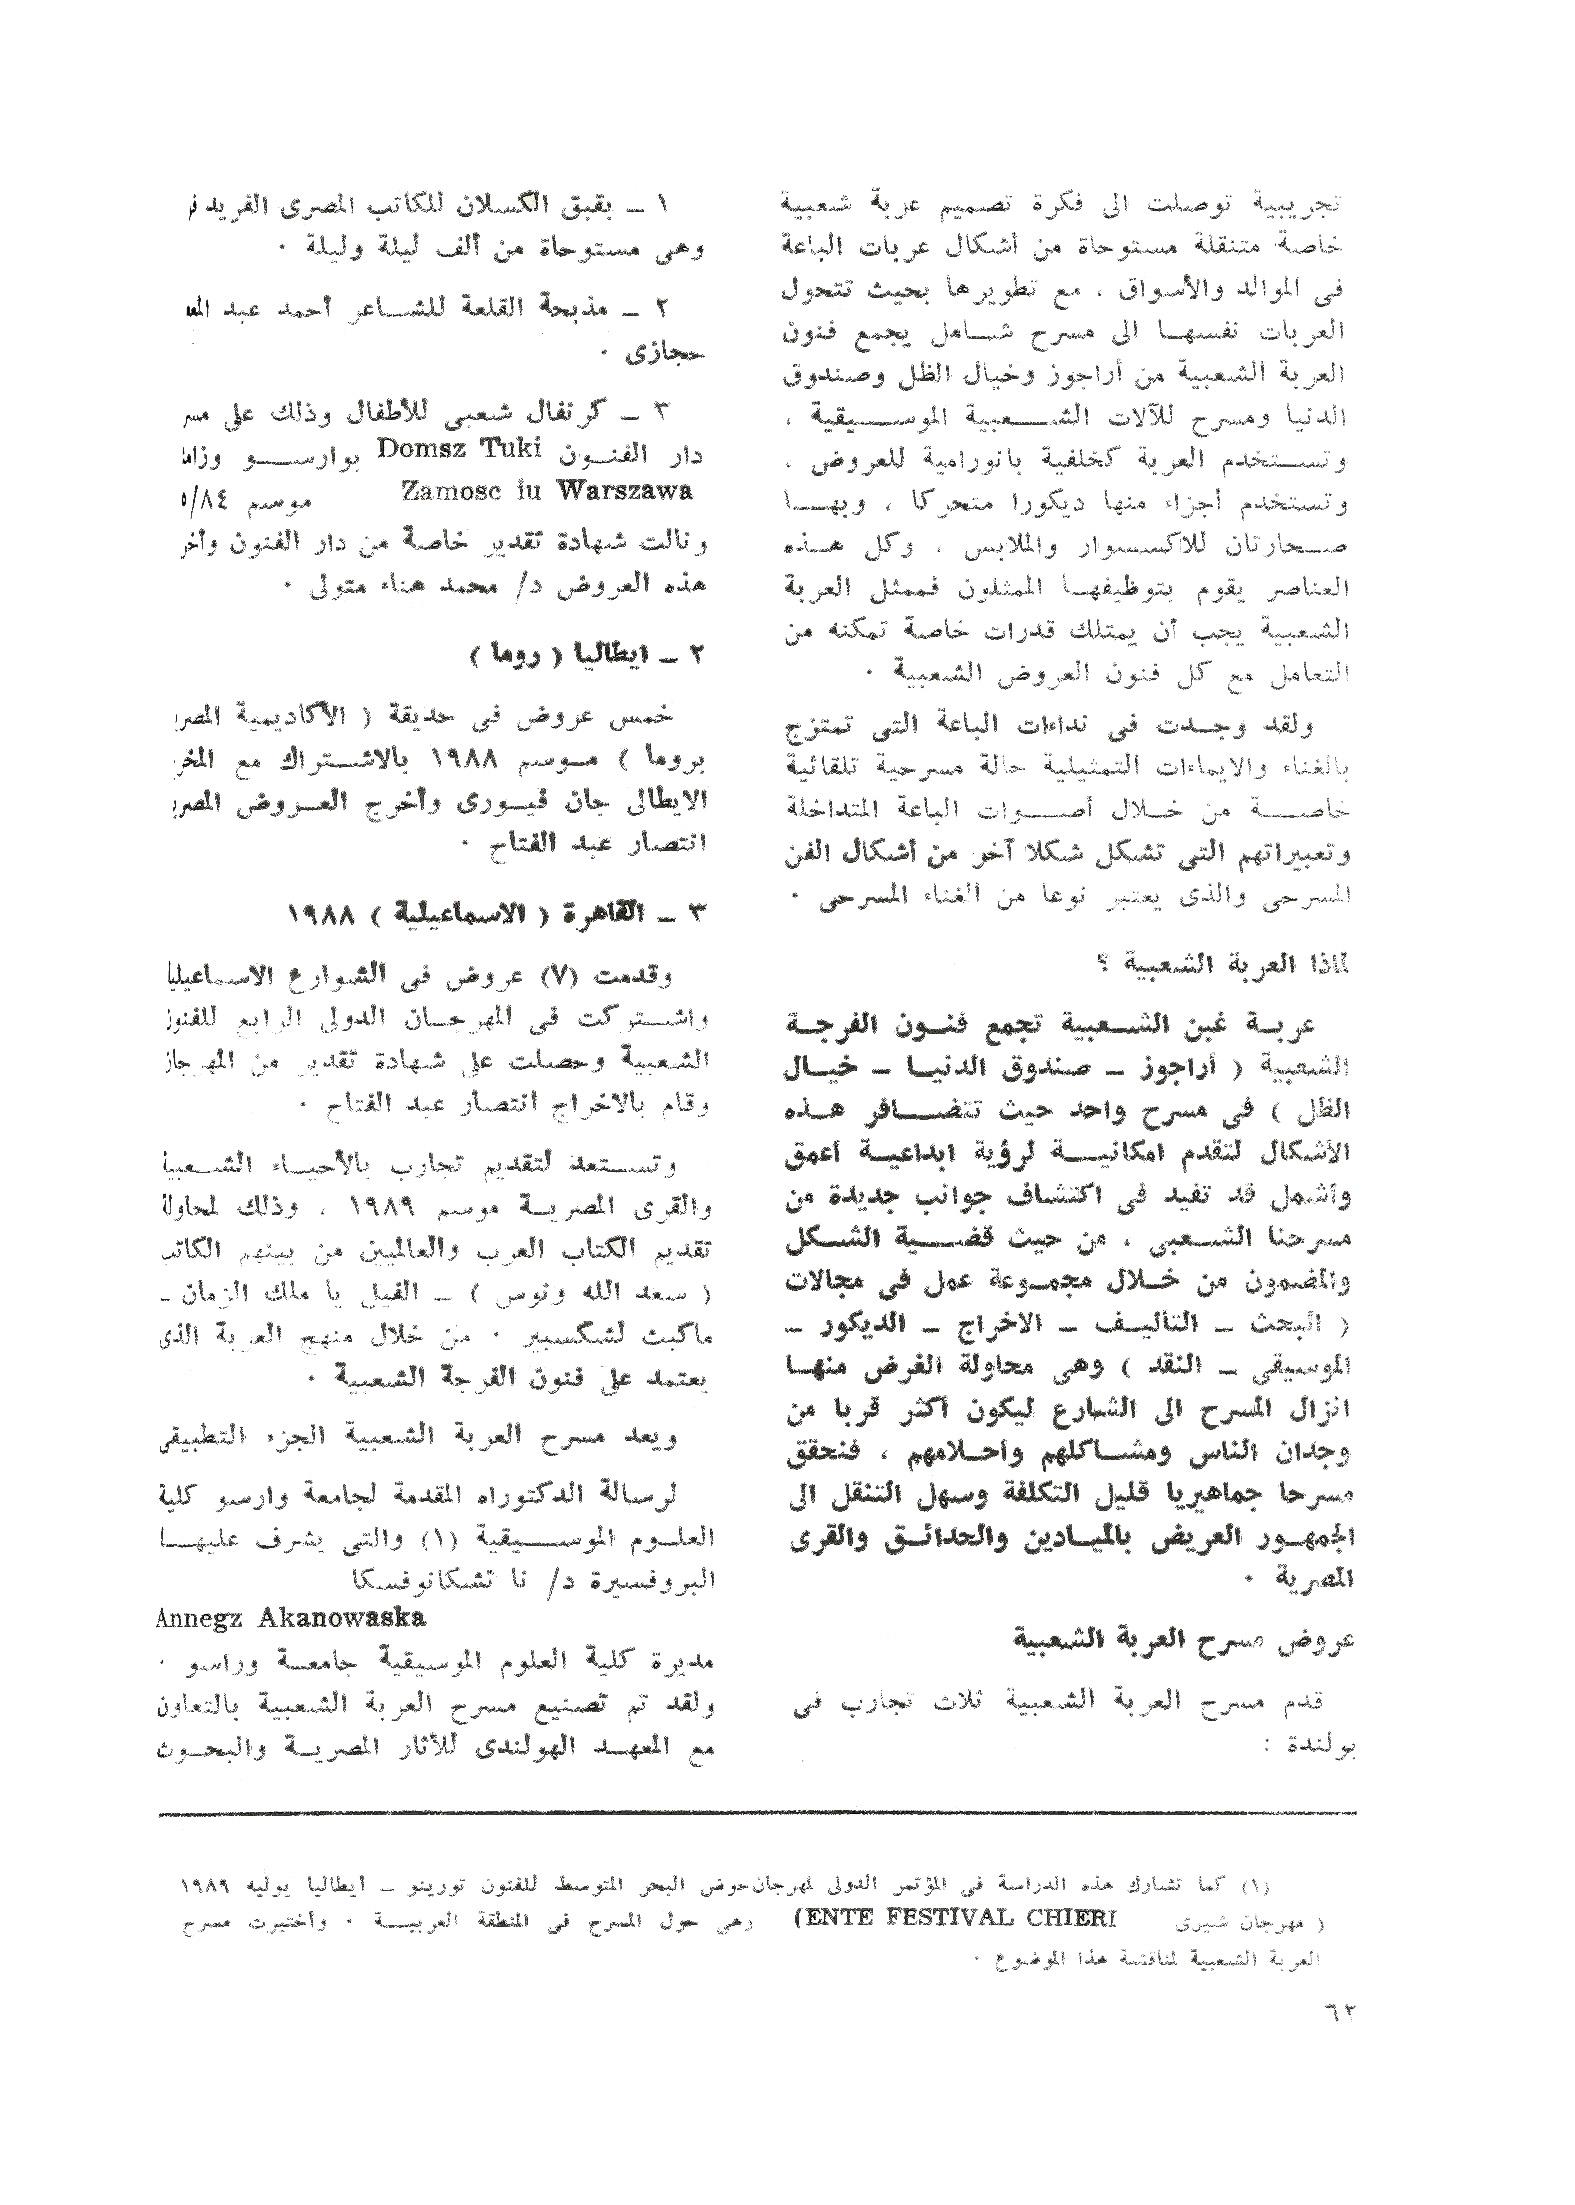 تجريبية توصلت الى فكرة تصميم عربة شعبية
خاصة متنقلة مستوحاة من أشكال عربات الباعة
فى الموالد والأسواق ، مع تطويرها بحيث تتحول
العربات نفسها الى مسرح شامل يجمع فنون
العربة الشعبية من أراجوز وخيال الظل وصندوق
الدنيا ومسرح للآلات الشعبية الموسيقية ،
وتستخدم العربة كخلفية بانورامية للعروض ،
وتستخدم أجزاء منها ديكورا متحركا ، وبها
صحارتان للاكسسوار والملابس ، وكل هذه
العناصر يقوم بتوظيفها الممثلون فممثل العربة
الشعبية يجب أن يمتلك قدرات خاصة تمكنه من
التعامل مع كل فنون العروض الشعبية .
ولقد وجدت فى نداءات الباعة التى تمتزج
بالغناء والايماءات التمثيلية حالة مسرحية تلقائية
خاصة من خلال أصوات الباعة المتداخلة
وتعبيراتهم التى تشكل شكلا آخر من أشكال الفن
المسرحى والذى يعتبر نوعا من الغناء المسرحى .
لماذا العربة الشعبية ؟
عربة غبن الشعبية تجمع فنون الفرجة
الشعبية ( أراجوز – صندوق الدنيا – خيال
الظل ) فى مسرح واحد حيث تتضافر هذه
الأشكال لتقدم امكانية لرؤية ابداعية أعمق
وأشمل قد تفيد فى اكتشاف جوانب جديدة من
مسرحنا الشعبى ، من حيث قضية الشكل
والمضمون من خلال مجموعة عمل فى مجالات
( البحث – التأليف – الاخراج – الديكور –
الموسيقى – النقد ) وهى محاولة الغرض منها
انزال المسرح الى الشارع ليكون أكثر قربا من
وجدان الناس ومشاكلهم وأحلامهم ، فنحقق
مسرحا جماهيريا قليل التكلفة وسهل التنقل الى
الجمهور العريض بالميادين والحدائق والقرى
المصرية .
عروض مسرح العربة الشعبية
قدم مسرح العربة الشعبية ثلاث تجارب فى
بولندة :
١ – بقبق الكسلان للكاتب المصرى الفريد
وهى مستوحاة من ألف ليلة وليلة .
٢ – مذبحة القلعة للشاعر أحمد عبد
حجازى .
٣ – كرنفال شعبى للأطفال وذلك على
دار الفنون Domsz Tuki بوارسو
Zamosc iu Warszawa موسم
ونالت شهادة تقدير خاصة من دار الفنون
هذه العروض د/ محمد هناء متولى .
٢ – ايطاليا ( روما )
خمس عروض فى حديقة ( الأكاديمية
بروما ) موسم ١٩٨٨ بالاشتراك مع
الايطالى جان فيورى وأخرج العروض
انتصار عبد الفتاح .
٣ – القاهرة ( الاسماعيلية ) ١٩٨٨
وقدمت (٧) عروض فى الشوارع
واشتركت فى المهرجان الدولى الرابع
الشعبية وحصلت على شهادة تقدير من
وقام بالاخراج انتصار عبد الفتاح .
وتستعد لتقديم تجارب بالأحياء
والقرى المصرية موسم ١٩٨٩ ، وذلك لمحاولة
تقديم الكتاب العرب والعالميين من بينهم
( سعد الله ونوس ) – الفيل يا ملك الزمان –
ماكبث لشكسبير . من خلال منهج العربة الذى
يعتمد على فنون الفرجة الشعبية .
ويعد مسرح العربة الشعبية الجزء التطبيقى
لرسالة الدكتوراه المقدمة لجامعة وارسو كلية
العلوم الموسيقية (١) والتى يشرف عليها
البروفسيرة د/ نا تشكانوفسكا
Annegz Akanowaska
مديرة كلية العلوم الموسيقية جامعة وراسو .
ولقد تم تصنيع مسرح العربة الشعبية بالتعاون
مع المعهد الهولندى للأثار المصرية والبحوث
(١) كما تشارك هذه الدراسة فى المؤتمر الدولى لمهرجان حوض البحر المتوسط للفنون تورينو – أيطاليا يوليه ١٩٨٩
( مهرجان شيرى ENTE FESTIVAL CHIERI) وهى حول المسرح فى المنطقة العربية . وأختيرت مسرح
العربة الشعبية لمناقشة هذا الموضوع .
٦٢